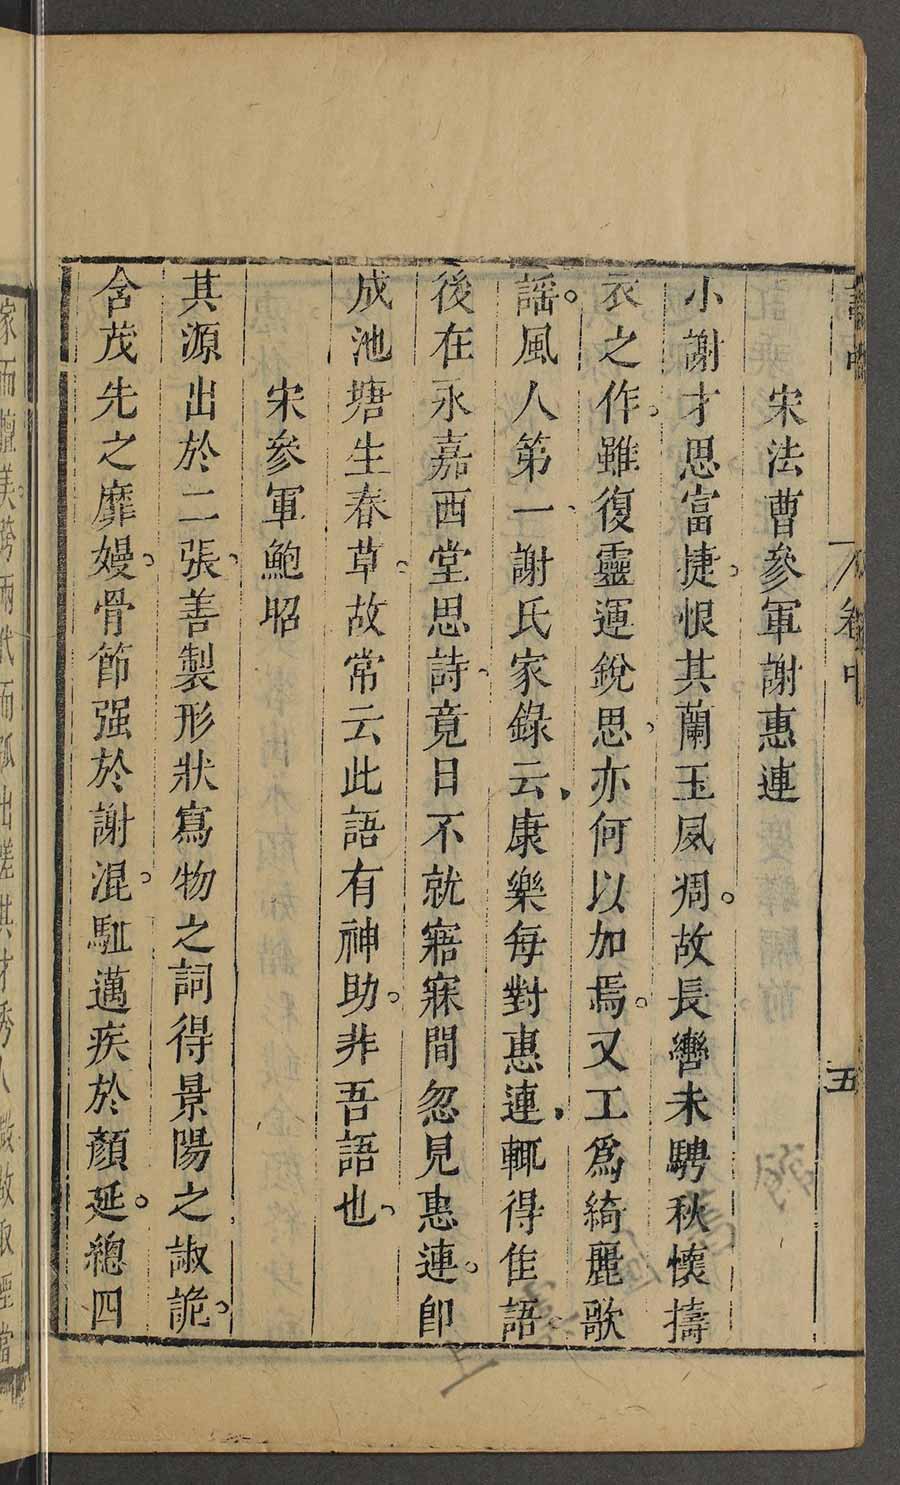 卷中
五
宋法曹參軍謝惠連
小謝才思富捷恨其蘭玉夙凋故長轡未騁秋懷擣
衣之作雖復靈運銳思亦何以加焉又工爲綺麗歌
謡風人第一謝氏家錄云康樂每對惠連輒得佳語
後在永嘉西堂思詩竟日不就寤寐間忽見惠連卽
成池塘生春草故常云此語有神助非吾語也
宋參軍鮑昭
其源出於二張善製形狀寫物之詞得景陽之諔詭
含茂先之靡嫚骨節强於謝混駈邁疾於顏延總四
家而擅美跨兩代而孤出嗟其才秀人微故取湮當